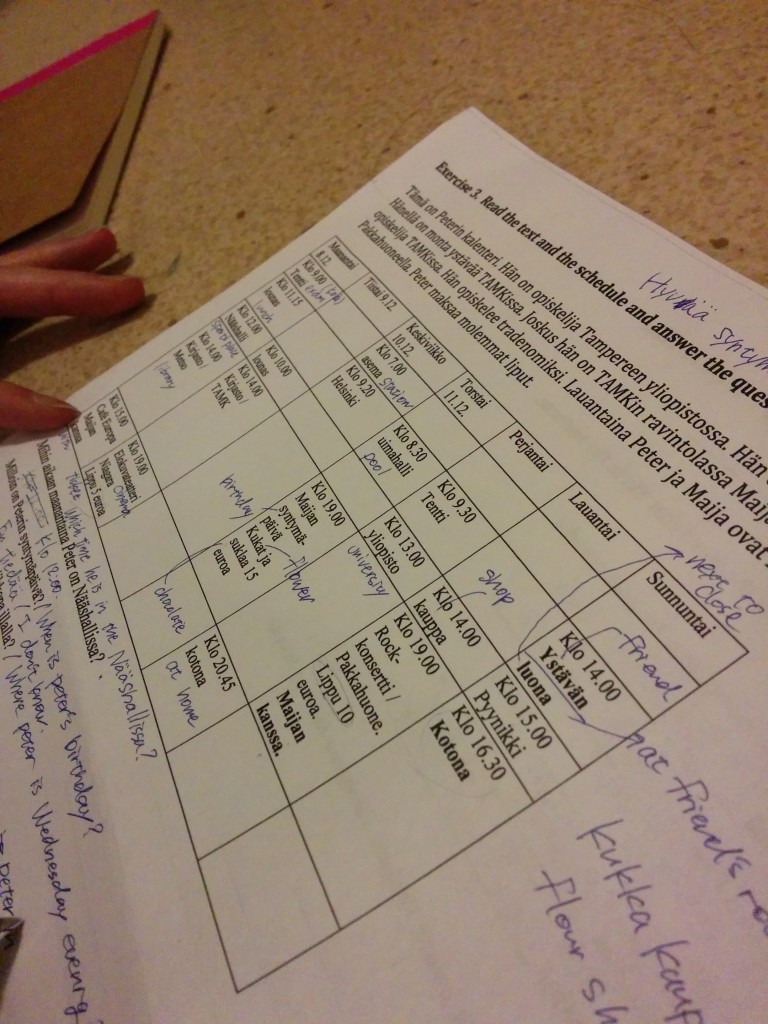 Hyvää
Exercise 3. Read the text and the schedule and answer the
Tämä on Peterin kalenteri. Hän on opiskelija Tampereen yliopistossa. Hän
Hänellä on monta ystävää TAMKissa. Joskus hän on TAMKin ravintolassa
opiskelija TAMKissa. Hän opiskelee tradenomiksi. Lauantaina Peter ja Maija ovat
Pakkahuoneella. Peter maksaa molemmat liput.
Maanantai
8.12.
Tiistai 9.12
Keskiviikko
10.12.
Torstai
11.12.
Perjantai
Lauantai
Sunnuntai
next to
close
Klo 9.00
Tentti exam
Klo 11.15
lounas
lunch
Klo 12.00
Nääshalli
Klo 14.00
Kirjasto /
Metso
library
Klo 15.00
Café Europa
Maijan
kanssa
Klo 10.00
luonas
Klo 14.00
Kirjasto /
TAMK
Klo 19.00
Elokuvateatteri
Niagara
Lippu 5 euroa
cinema
Klo 7.00
asema station
Klo 9.20
Helsinki
Klo 8.30
uimahalli
pool
Klo 19.00
Maijan
syntymä-
päivä
Kukat ja
suklaa 15
euroa
birthday
flower
chocolate
Klo 9.30
Tentti
Klo 13.00
yliopisto
university
Klo 20.45
kotona
at home
shop
Klo 14.00
kauppa
Klo 19.00
Rock-
konsertti /
Pakkahuone.
Lippu 10
euroa.
Maijan
kanssa.
friend
Klo 14.00
Ystävän
luona
Klo 15.00
Pyynikki
Klo 16.30
Kotona
at friend's
kukka
flour
which time he is in the Nääshallissa?
Mihin aikaan maanantaina Peter on Nääshallissa?
Klo 12.00.
Milloin on Peterin syntymäpäivä? / When is peter's birthday?
En tiedä / I don't know.
/ Where peter is Wednesday